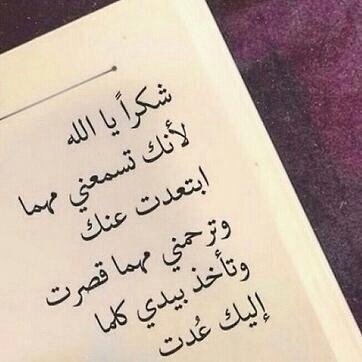 شكراً يا الله
لأنك تسمعني مهما
ابتعدت عنك
وترحمني مهما قصرت
وتأخذ بيدي كلما
إليك عُدت